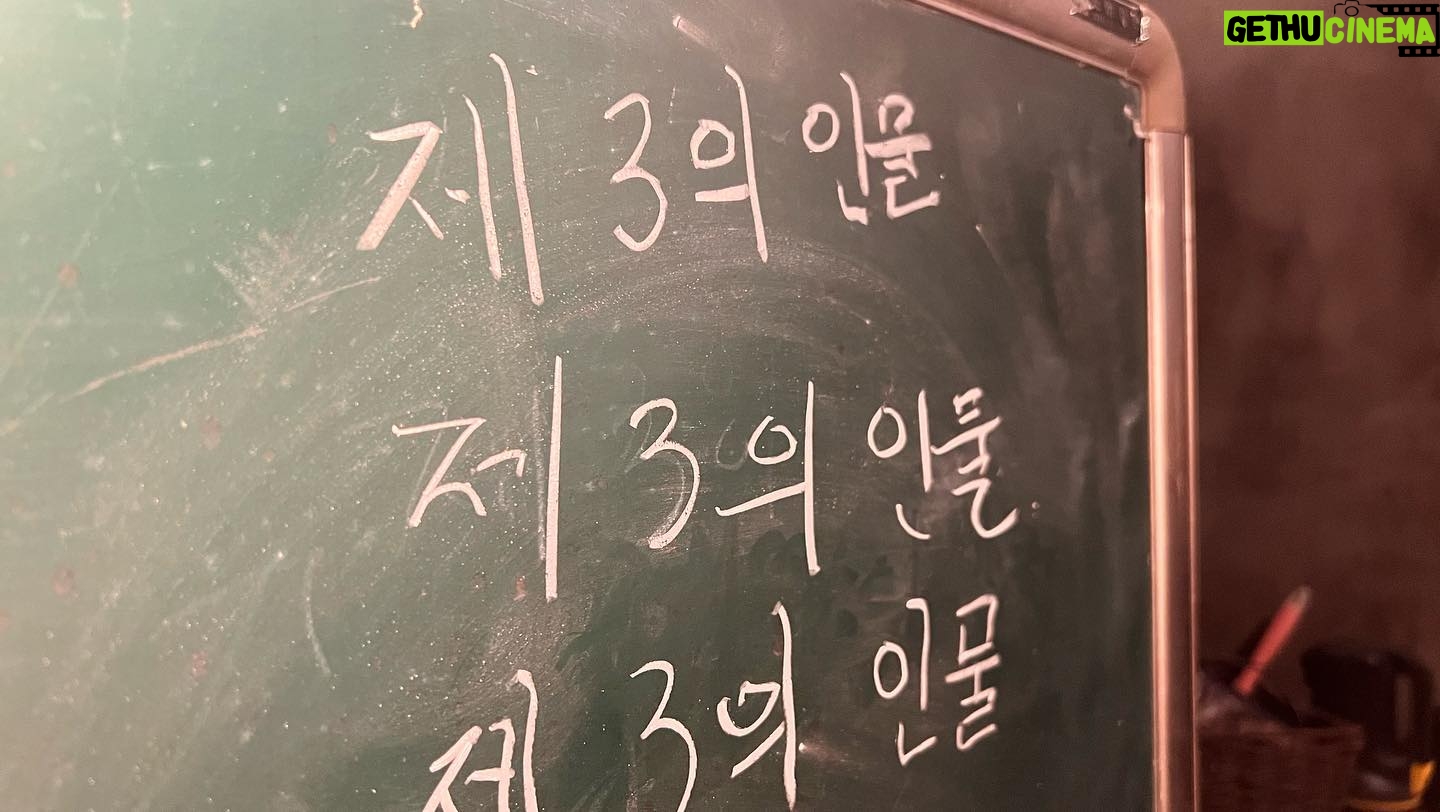 GETHUCINEMA
제 3의 인물
제 3의 인물
제 3의 인물